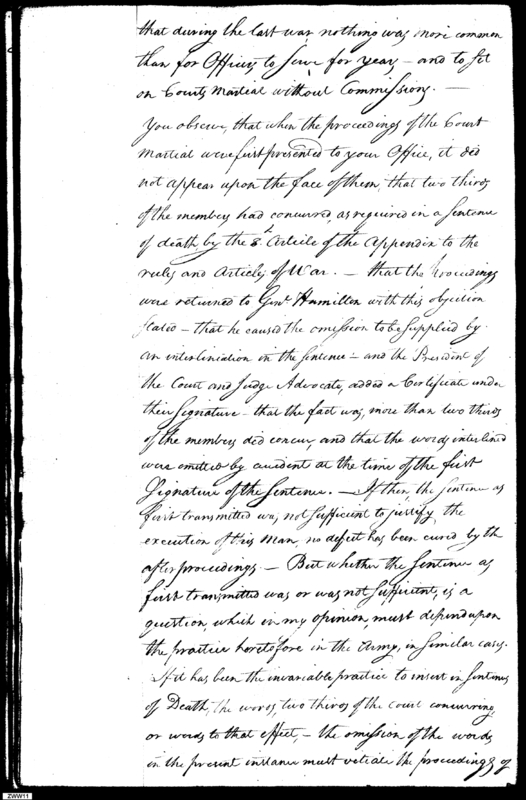 that during the last war nothing was more common
than for Officers to serve for years – and to sit
on Courts Martial without Commissions. —
You observe, that when the proceedings of the Court
Martial were first presented to your Office, it did
not appear upon the face of them, that two thirds
of the members had concurred, as required in a Sentence
of death, by the 8th Article of the Appendix to the
rules and Articles of War. — that the Proceedings
were returned to Genl Hamilton with this objection
stated – that he caused the omission to be supplied by
an interlineation in the Sentence – and the President of
the Court and Judge Advocate, added a Certificate under
their Signature – that the fact was, more than two thirds
of the members did concur, and that the words interlined
were omitted by accident at the time of the first
Signature of the Sentence. — If then, the Sentence as
first transmitted was not sufficient to justify the
execution of this man, no defect has been cured by the
after proceedings – But whether the Sentence as
first transmitted was or was not sufficient, is a
question, which in my opinion, must depend upon
the practice heretofore in the Army, in similar cases.
If it has been the invariable practice to insert in Sentences
of Death, the words, two thirds of the court concurring,
or words to that effect, – the omission of the words
in the present instance must vitiate the proceedings of
ZWW11